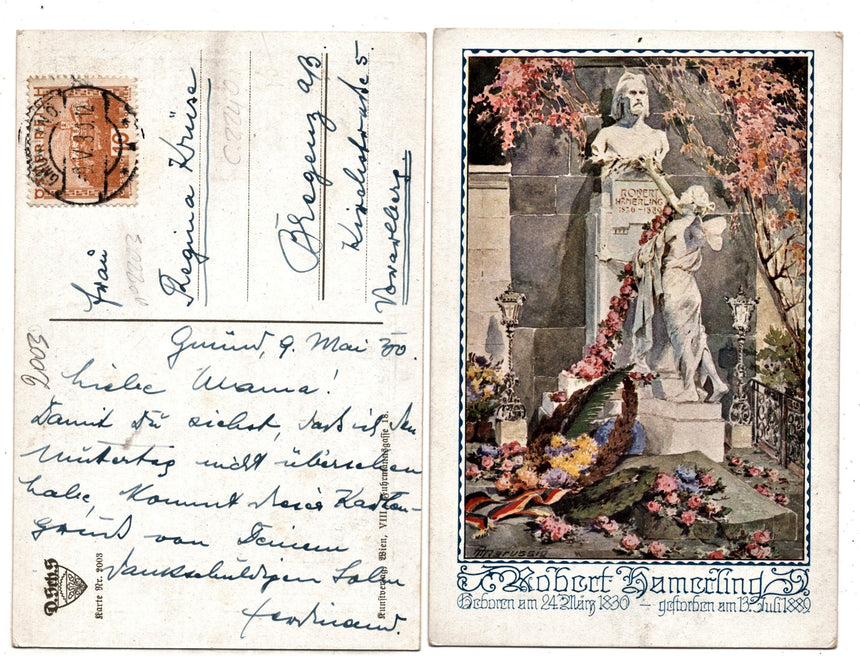 Frau
Regina Krüse
Bregenz a/B.
Kirchstraße 5.
Vorarlberg.
2003
Gmünd, 9. Mai 30.
Liebe Mama!
Damit Du siehst, dass ich den
Muttertag nicht übersehen
habe, kommt dieser Karten-
gruß von Deinem
dankschuldigen Sohn
Ferdinand.
D.Sch.S
Karte Nr. 2003
Kunstverlag Wien, VIII. Fuhrmannsgasse 18.
ROBERT
HAMERLING
1830-1889
Robert Hamerling
Geboren am 24. März 1830 – gestorben am 13. Juli 1889